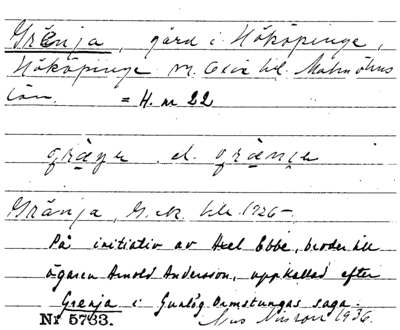 Gränja, gård i Hököpinge,
Hököpinge sn. Oxie hd. Malmöhus
län. = H. nr 22
gräŋa el. gränia
Gränja, G.K. bl. 1926-
På initiativ av Axel Ebbe, broder till
ägaren Arnold Andersson, uppkallad efter
Grenja i Gunlög Ormstungas saga.
Nr 5763. 1936.